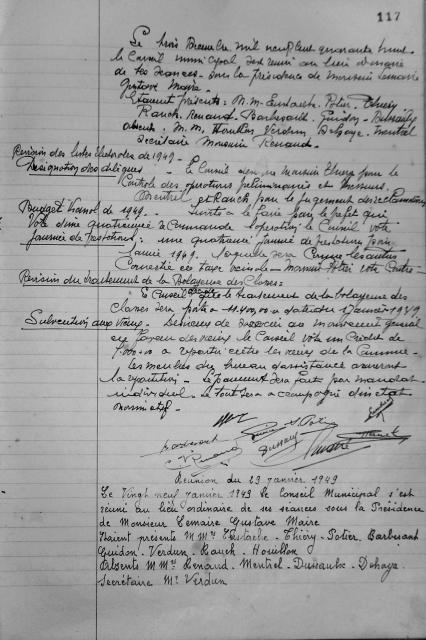 117
Le trois Décembre mil neuf cent quarante huit
le Conseil municipal s'est réuni au lieu ordinaire
de ses séances sous la présidence de Monsieur Lemaire
Gustave Maire.
Etaient présents : M.M. Eustache. Potier. Thiery
Rauch. Renaud. Barbesant. Guidon. Dussaulx
absents : M.M. Houllon Verdun Dehaye. Mentrel
Secrétaire Monsieur Renaud.
Révision des listes électorales de 1949.
Désignation des délégués - le Conseil Monsieur Thiery pour le
Contrôle des opérations préliminaires et Messieurs
Mentrel et Rauch pour le jugement des réclamations
Budget Vicinal de 1949. - Suite à la faite par le Préfet qui
une quatrième le Conseil vote
Journée de prestations : une quatrième journée de prestations pour
l'année 1949. Laquelle sera comme les autres
Convertie en taxe vicinale - Monsieur Potier vote contre -
Révision du traitement de la Balayeuse des Classes =
le Conseil le traitement de la balayeuse des
Classes sera porté à à dater du 1er Janvier 1949
Subvention aux Vieux. au mouvement général
en faveur des vieux le Conseil vote un Crédit de
à répartir entre les vieux de la Commune
les membres du bureau d'assistance
la répartition - le paiement sera fait par mandat
individuel. le tout sera accompagné d'un état
nominatif.
Barbesant
Dussaulx
Réunion du 29 janvier 1949
Le Vingt neuf janvier 1949 le Conseil Municipal s'est
réuni au lieu ordinaire de ses séances sous la Présidence
de Monsieur Lemaire Gustave Maire
Etaient présents M Mrs Eustache - Thiéry - Potier. Barbesant
Guidon. Verdun - Rauch - Houillon
Absents M Mrs Renaud. Mentrel - Dussaulx - Dehaye
Secrétaire Mr Verdun